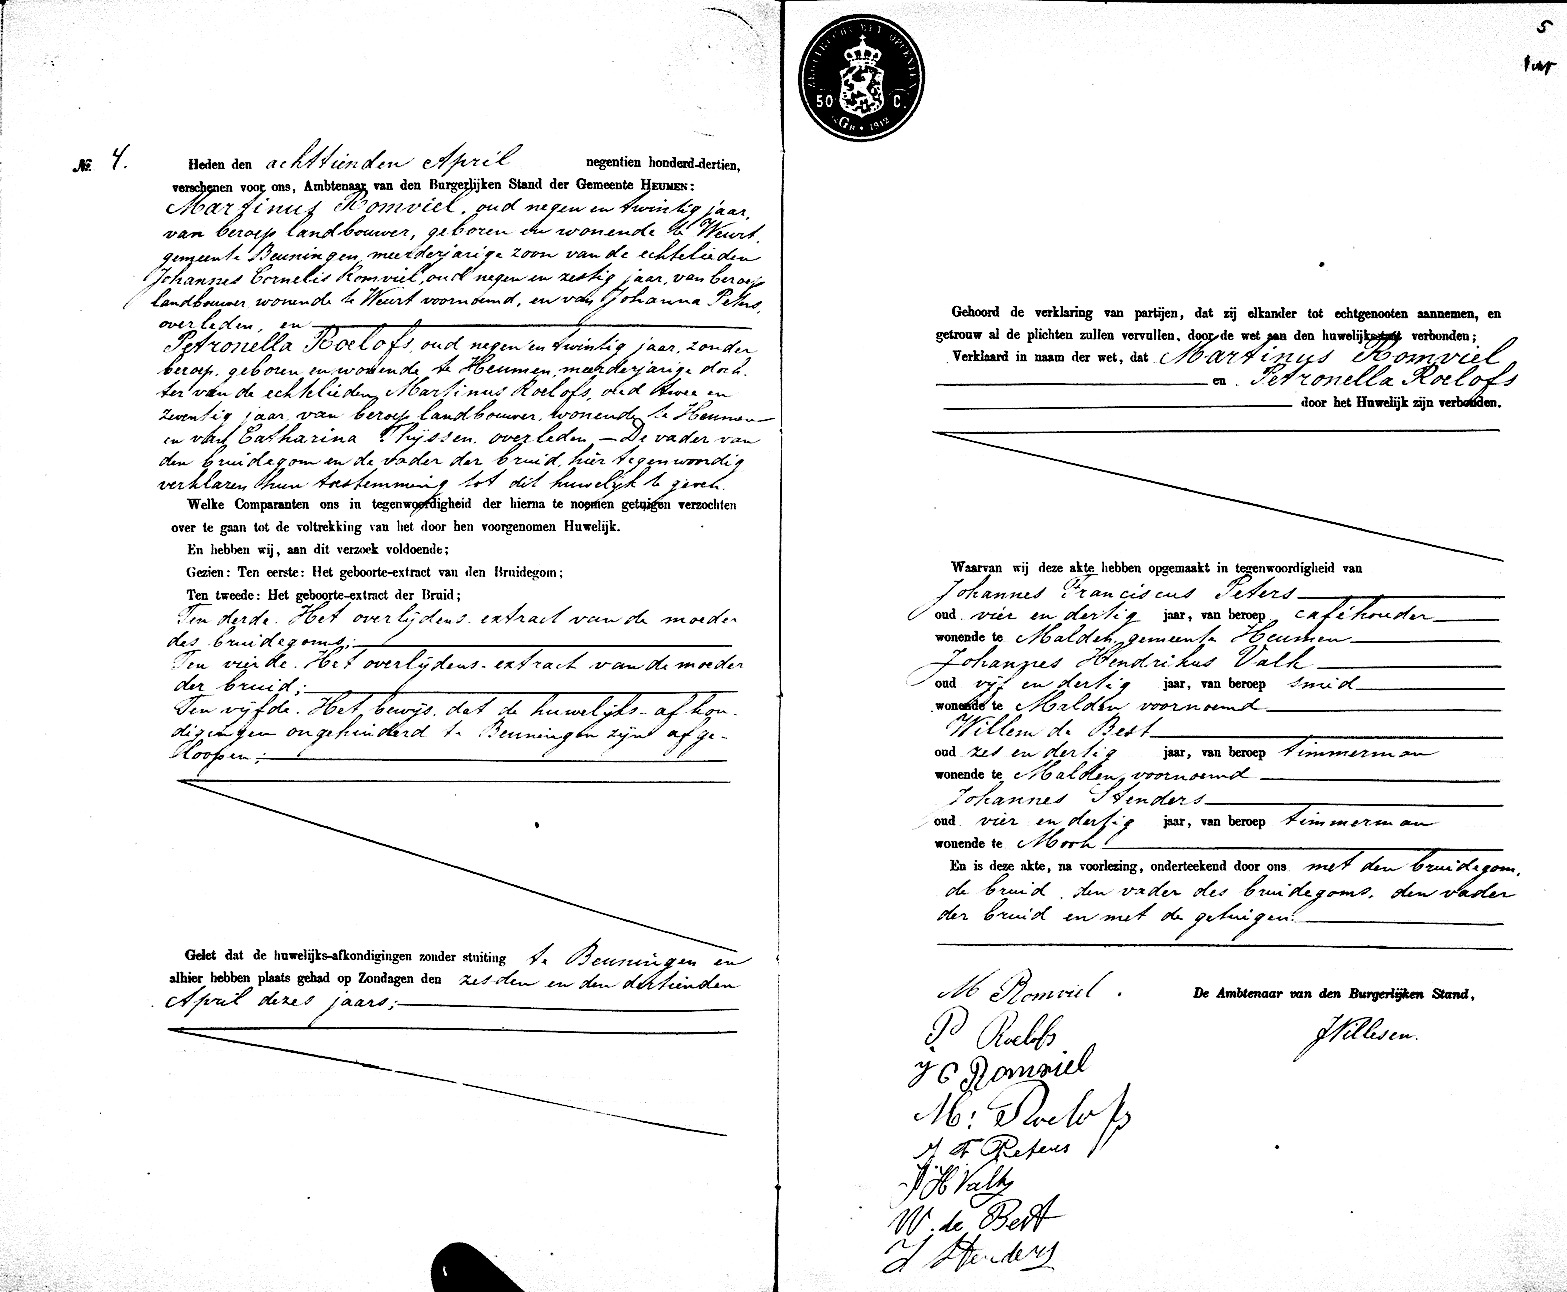 № 4. Heden den achttienden April negentien honderd-dertien,
verschenen voor ons, Ambtenaar van den Burgerlijken Stand der Gemeente HEUMEN:
Martinus Romviel, oud negen en twintig jaar,
van beroep landbouwer, geboren en wonende te Weurt,
gemeente Beuningen, meerderjarige zoon van de echtelieden
Johannes Cornelis Romviel, oud negen en zestig jaar, van beroep
landbouwer, wonende te Weurt voornoemd, en van Johanna Peters,
overleden, en
Petronella Roelofs, oud negen en twintig jaar, zonder
beroep, geboren en wonende te Heumen, meerderjarige doch-
ter van de echtelieden Martinus Roelofs, oud twee en
zeventig jaar, van beroep landbouwer, wonende te Heumen
en van Catharina Thijssen, overleden, — De vader van
den bruidegom en de vader der bruid, hier tegenwoordig
verklaren hun toestemming tot dit huwelijk te geven.
Welke Comparanten ons in tegenwoordigheid der hierna te noemen getuigen verzochten
over te gaan tot de voltrekking van het door hen voorgenomen Huwelijk.
En hebben wij, aan dit verzoek voldoende;
Gezien: Ten eerste: Het geboorte-extract van den Bruidegom;
Ten tweede: Het geboorte-extract der Bruid;
Ten derde. Het overlijdens-extract van de moeder
des bruidegoms;
Ten vierde. Het overlijdens-extract van de moeder
der bruid;
Ten vijfde. Het bewijs, dat de huwelijks-afkon-
digingen ongehinderd te Beuningen zijn afge-
loopen;
Gelet dat de huwelijks-afkondigingen zonder stuiting te Beuningen en
alhier hebben plaats gehad op Zondagen den zesden en den dertienden
April dezes jaars;
5
50 C.
1912
Gehoord de verklaring van partijen, dat zij elkander tot echtgenooten aannemen, en
getrouw al de plichten zullen vervullen, door de wet aan den huwelijksstaat verbonden;
Verklaard in naam der wet, dat Martinus Romviel
en Petronella Roelofs
door het Huwelijk zijn verbonden.
Waarvan wij deze akte hebben opgemaakt in tegenwoordigheid van
Johannes Franciscus Peters
oud vier en dertig jaar, van beroep caféhouder
wonende te Malden, gemeente Heumen
Johannes Hendrikus Valk
oud vijf en dertig jaar, van beroep smid
wonende te Malden voornoemd
Willem de Best
oud zes en dertig jaar, van beroep timmerman
wonende te Malden, voornoemd
Johannes Stenders
oud vier en dertig jaar, van beroep timmerman
wonende te Mook
En is deze akte, na voorlezing, onderteekend door ons met den bruidegom,
de bruid, den vader des bruidegoms, den vader
der bruid en met de getuigen.
M Romviel.
De Ambtenaar van den Burgerlijken Stand,
P Roelofs
JWillesen.
J C Romviel
M: Roelofs
J F Peters
J H Valk
W. de Best
J Stenders